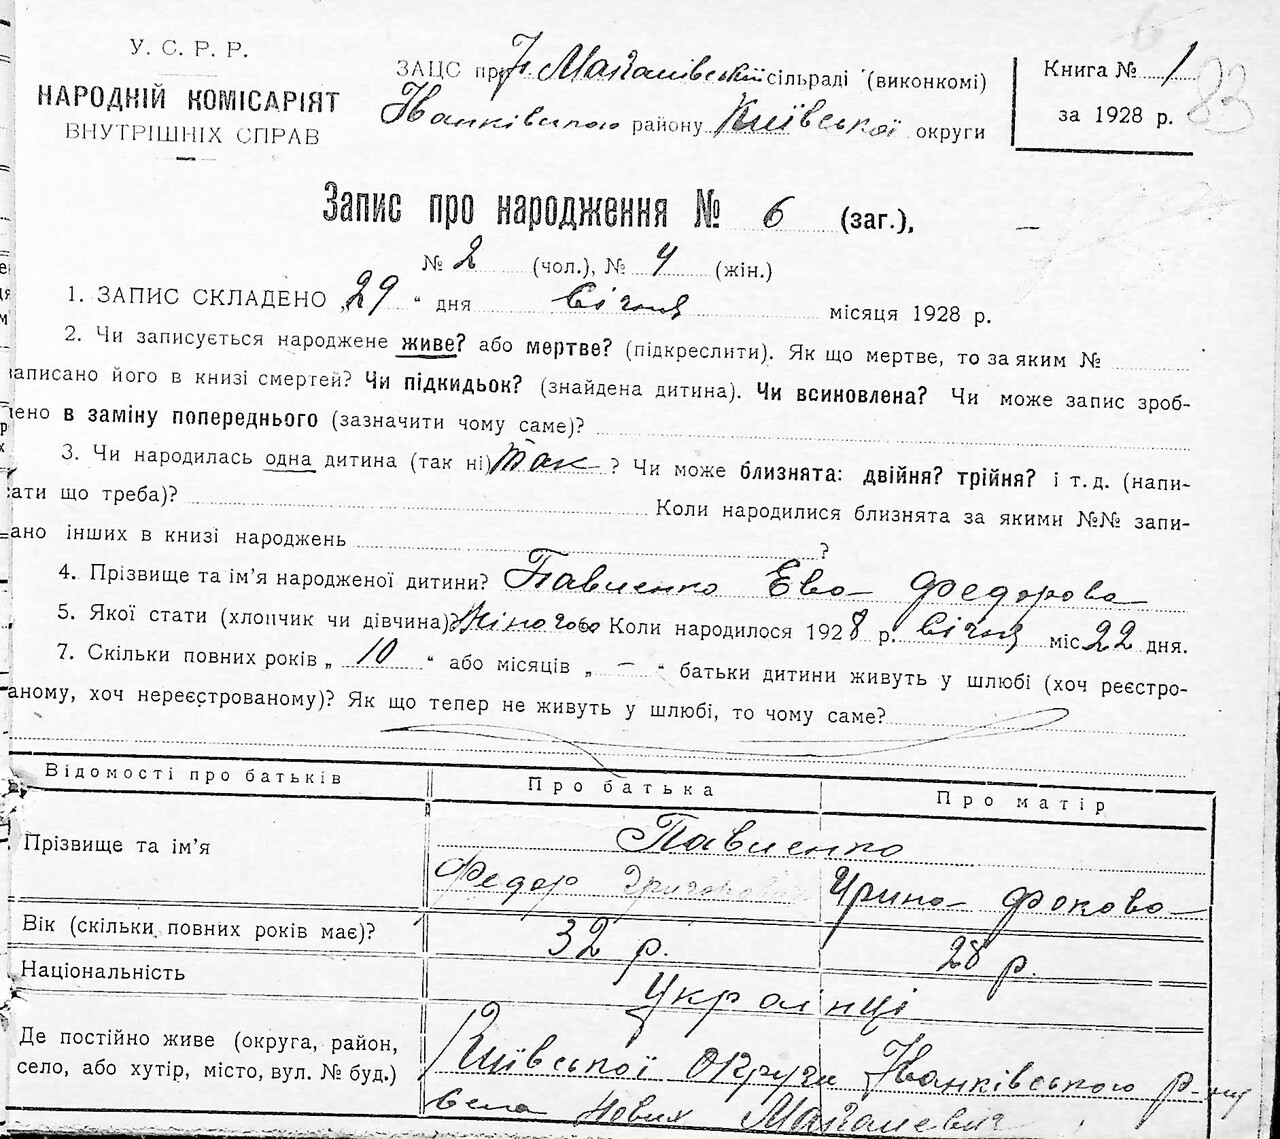 У. С. Р. Р.
НАРОДНІЙ КОМІСАРІЯТ
ВНУТРІШНІХ СПРАВ
ЗАЦС при Н. Макалевській сільраді (виконкомі)
Іванківського району Київської округи
Книга № 1
за 1928 р.
83
Запис про народження № 6 (заг.),
№ 2 (чол.), № 4 (жін.)
1. ЗАПИС СКЛАДЕНО „29 “ дня січня місяця 1928 р.
2. Чи записується народжене живе? або мертве? (підкреслити). Як що мертве, то за яким №
записано його в книзі смертей? Чи підкидьок? (знайдена дитина). Чи всиновлена? Чи може запис зроб-
лено в заміну попереднього (зазначити чому саме)?
3. Чи народилась одна дитина (так ні) так ? Чи може близнята: двійня? трійня? і т. д. (напи-
сати що треба)? Коли народилися близнята за якими №№ запи-
сано інших в книзі народжень ?
4. Прізвище та ім’я народженої дитини? Павленко Ева Федорова
5. Якої стати (хлопчик чи дівчина)? Жіночого Коли народилося 1928 р. січня міс 22 дня.
7. Скільки повних років „ 10 “ або місяців „ – “ батьки дитини живуть у шлюбі (хоч реєстро-
ваному, хоч нереєстрованому)? Як що тепер не живуть у шлюбі, то чому саме?
Відомості про батьків Про батька Про матір
Прізвище та ім’я Павленко
Федор Григорович Ирина Фокова
Вік (скільки повних років має)? 32 р. 28 р.
Національність Українці
Де постійно живе (округа, район,
село, або хутір, місто, вул. № буд.)
Київської округи Іванківського р-ну
села Нових Макалевич